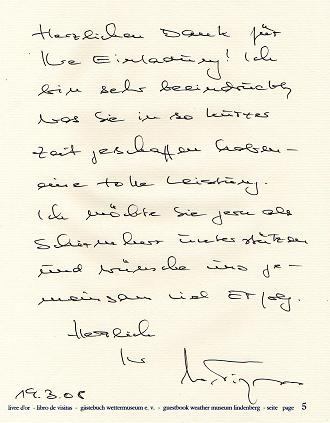 Herzlichen Dank für
Ihre Einladung! Ich
bin sehr beeindruckt,
was Sie in so kurzer
Zeit geschaffen haben –
eine tolle Leistung.
Ich möchte Sie gern als
Schirmherr unterstützen
und wünsche uns ge-
meinsam viel Erfolg.
Herzlich
Ihr
19.3.06
livre d'or - libro de visitas - gästebuch wettermuseum e. v. - guestbook weather museum lindenberg - seite page 5